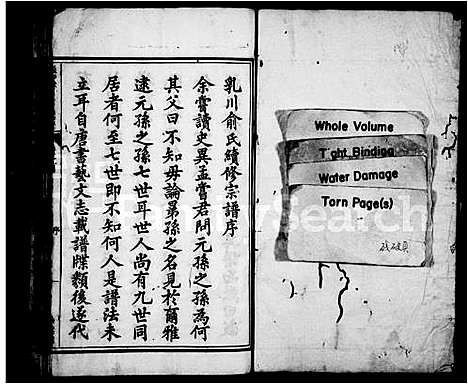 乳川俞氏續修宗譜序
余嘗讀史異孟嘗君問元孫之孫為何
其父曰不知毋論累孫之名見於爾雅
逮元孫之孫七世耳世人尚有九世同
居者何至七世即不知何人是譜法未
立耳自唐書藝文志載譜牒類後遂代
序
Whole Volume
Tight Binding
Water Damage
Torn Page(s)
FamilySearch